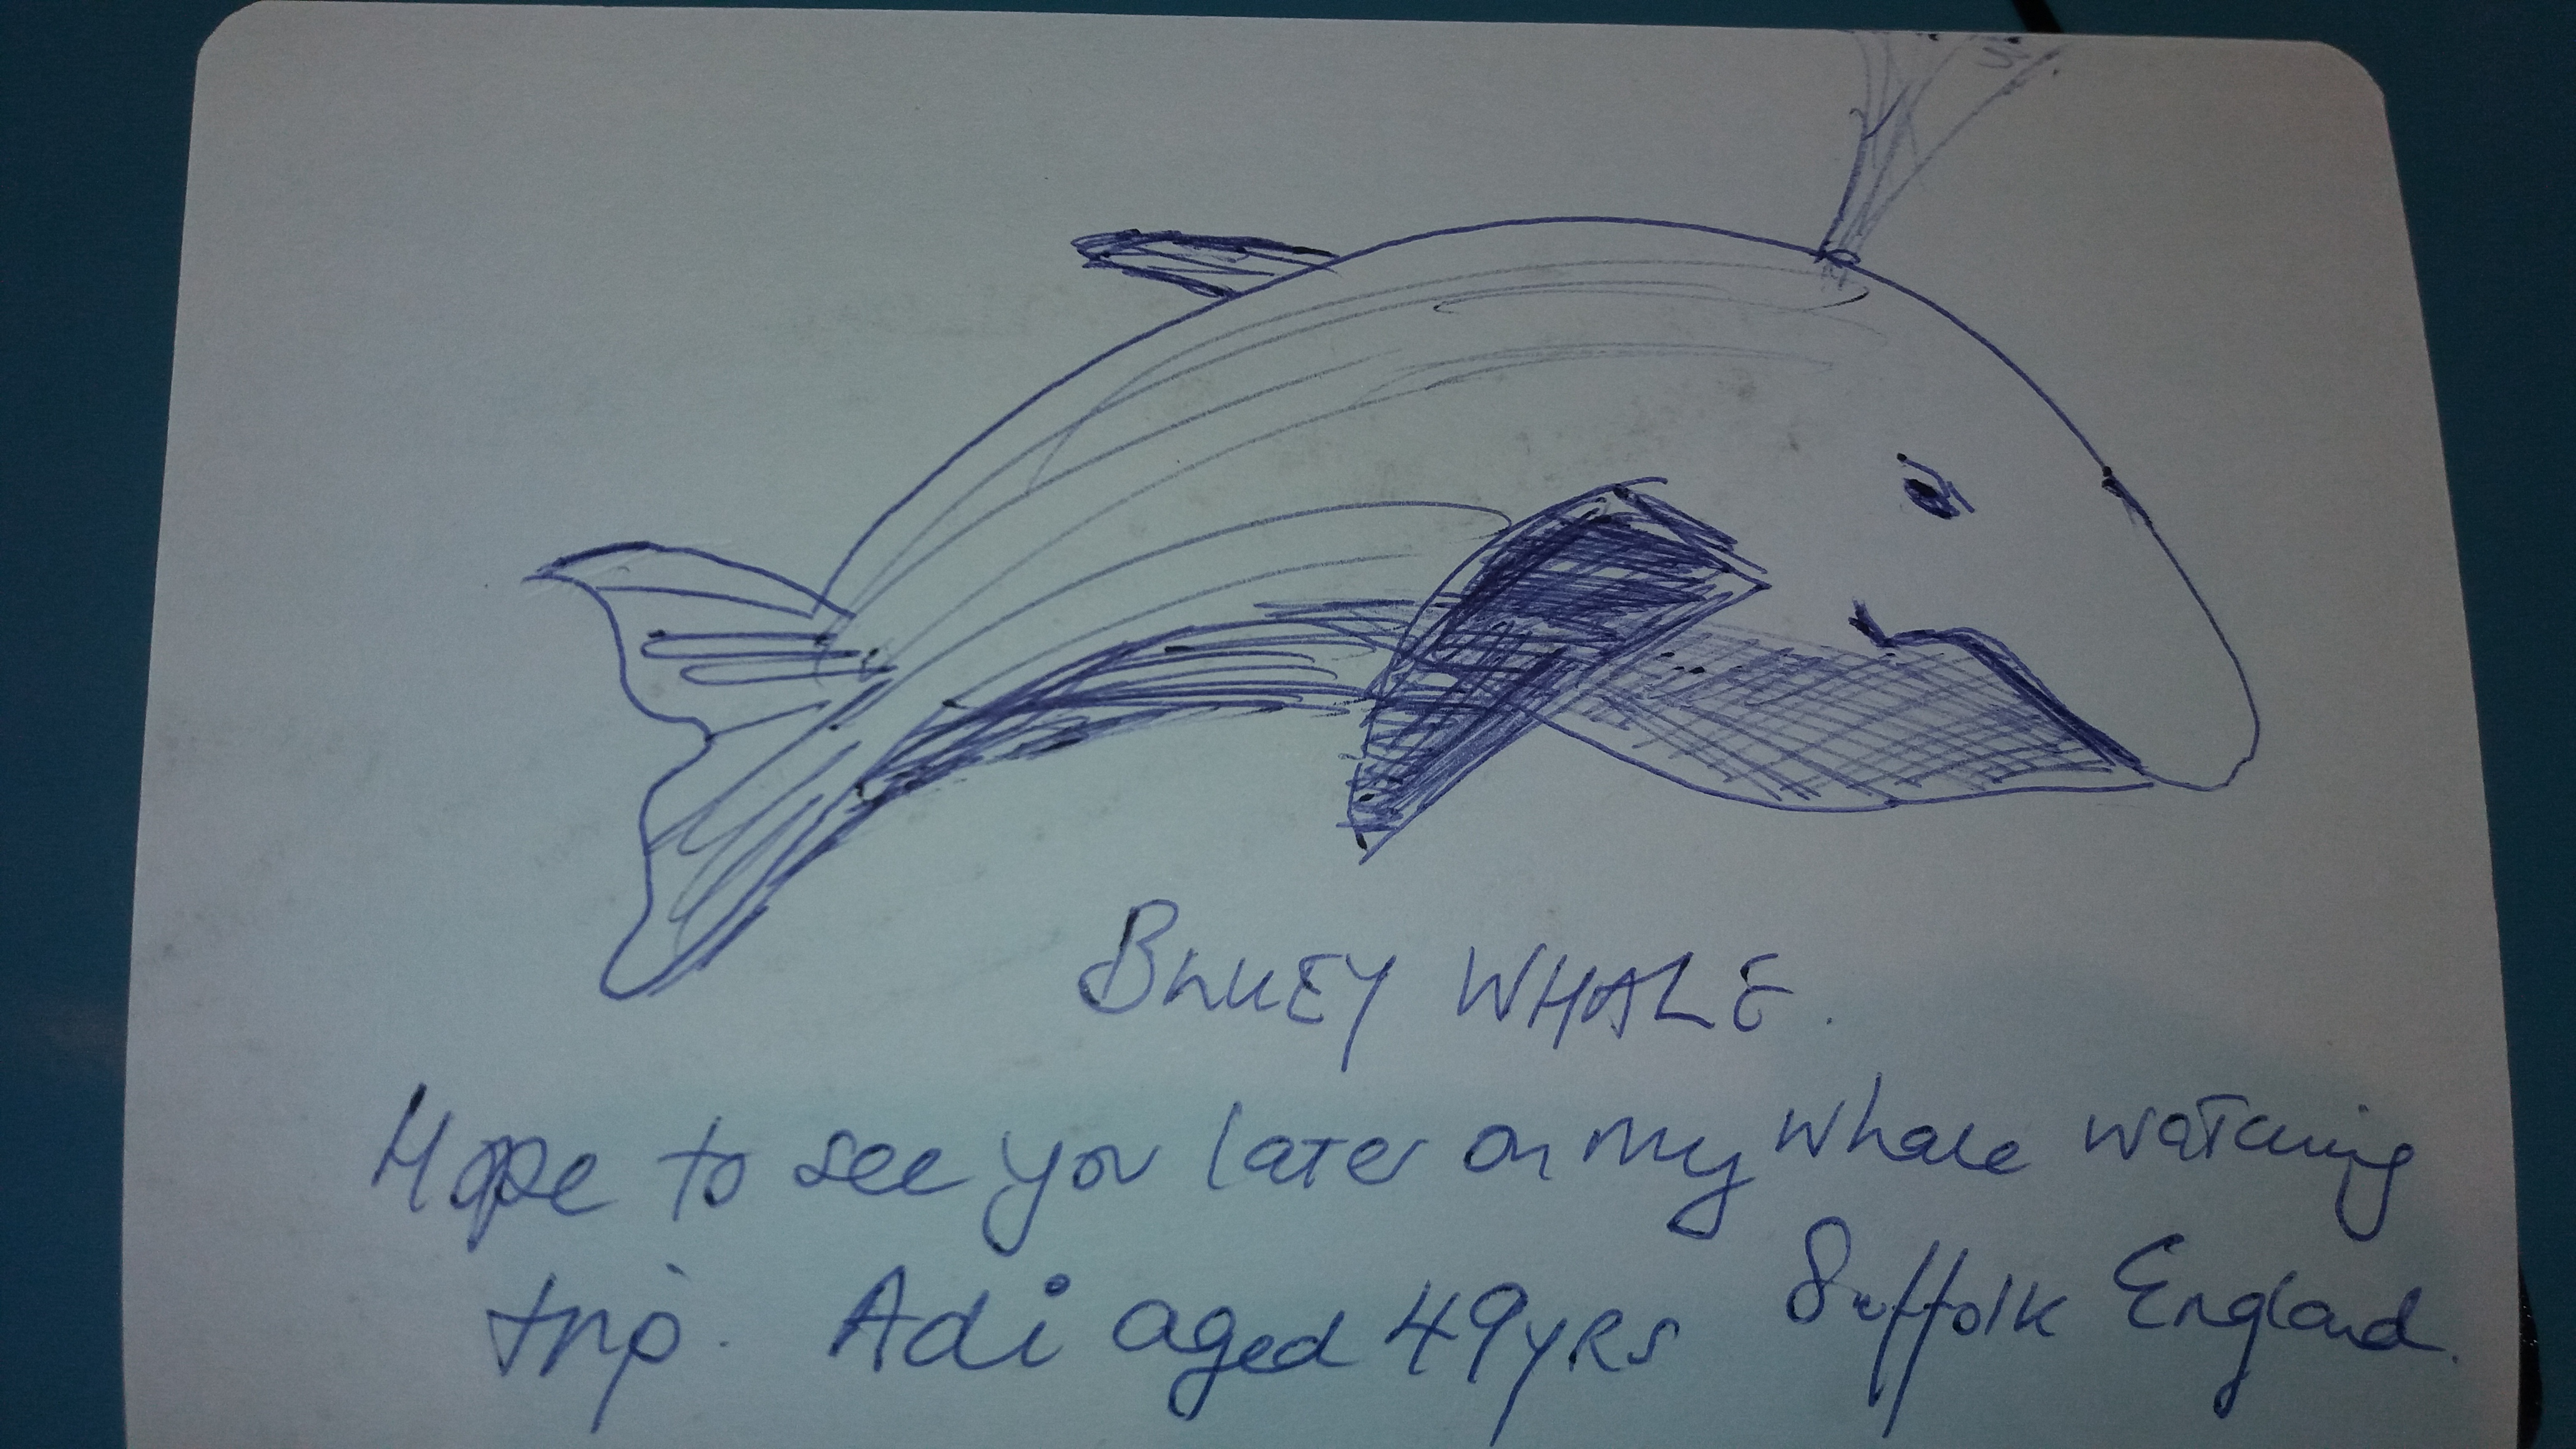 BLUEY WHALE.
Hope to see you later on my whale watching
trip. Adi aged 49yrs Suffolk England.